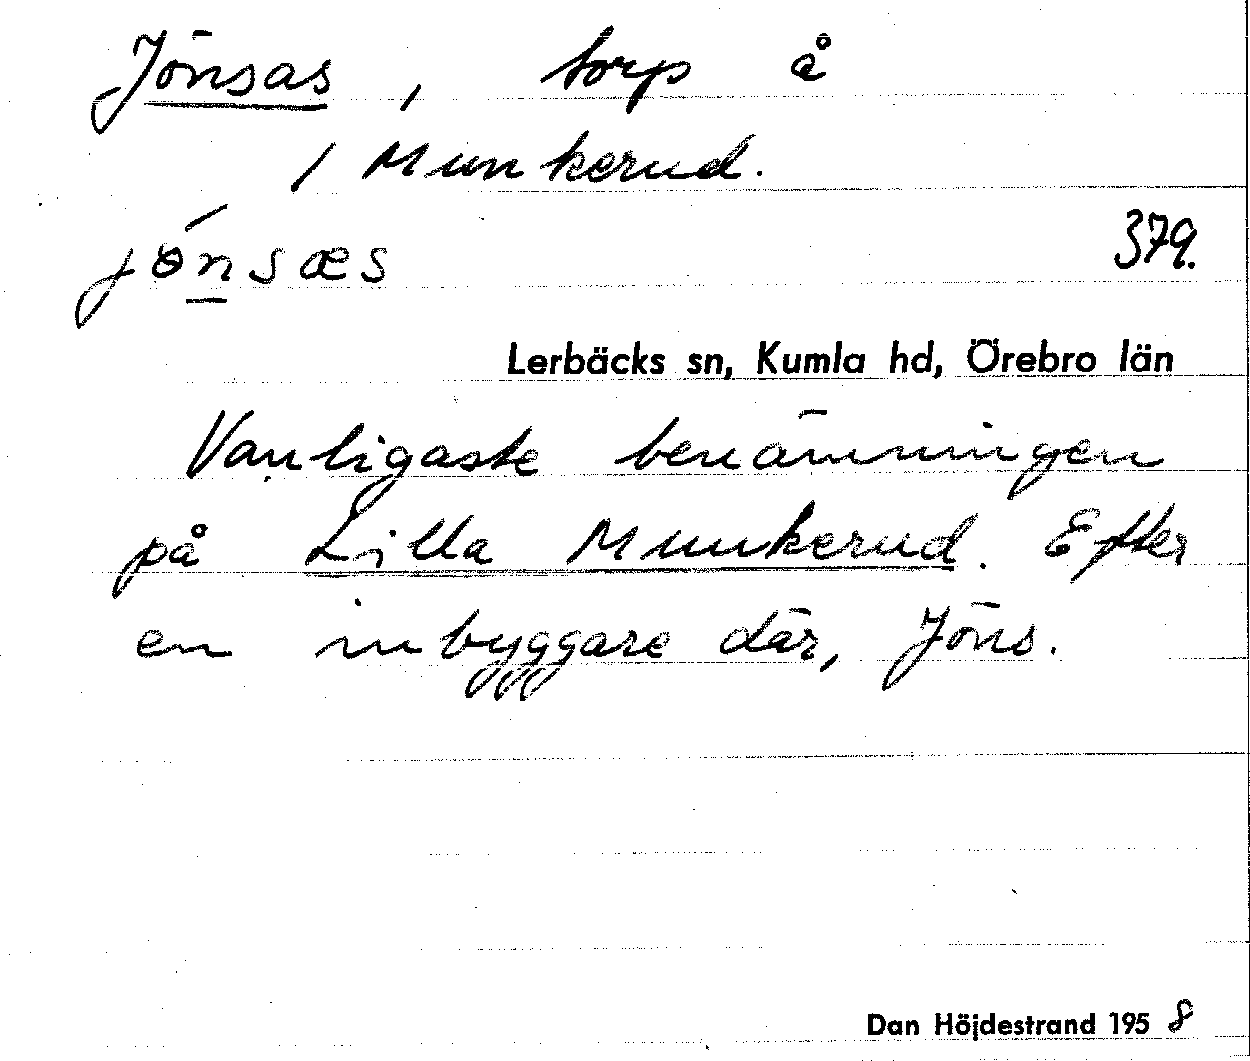 Jönsas, torp å
/ Munkerud.
jö́nsæs 379.
Lerbäcks sn, Kumla hd, Örebro län
Vanligaste benämningen
på Lilla Munkerud. Efter
en inbyggare där, Jöns.
Dan Höjdestrand 1958